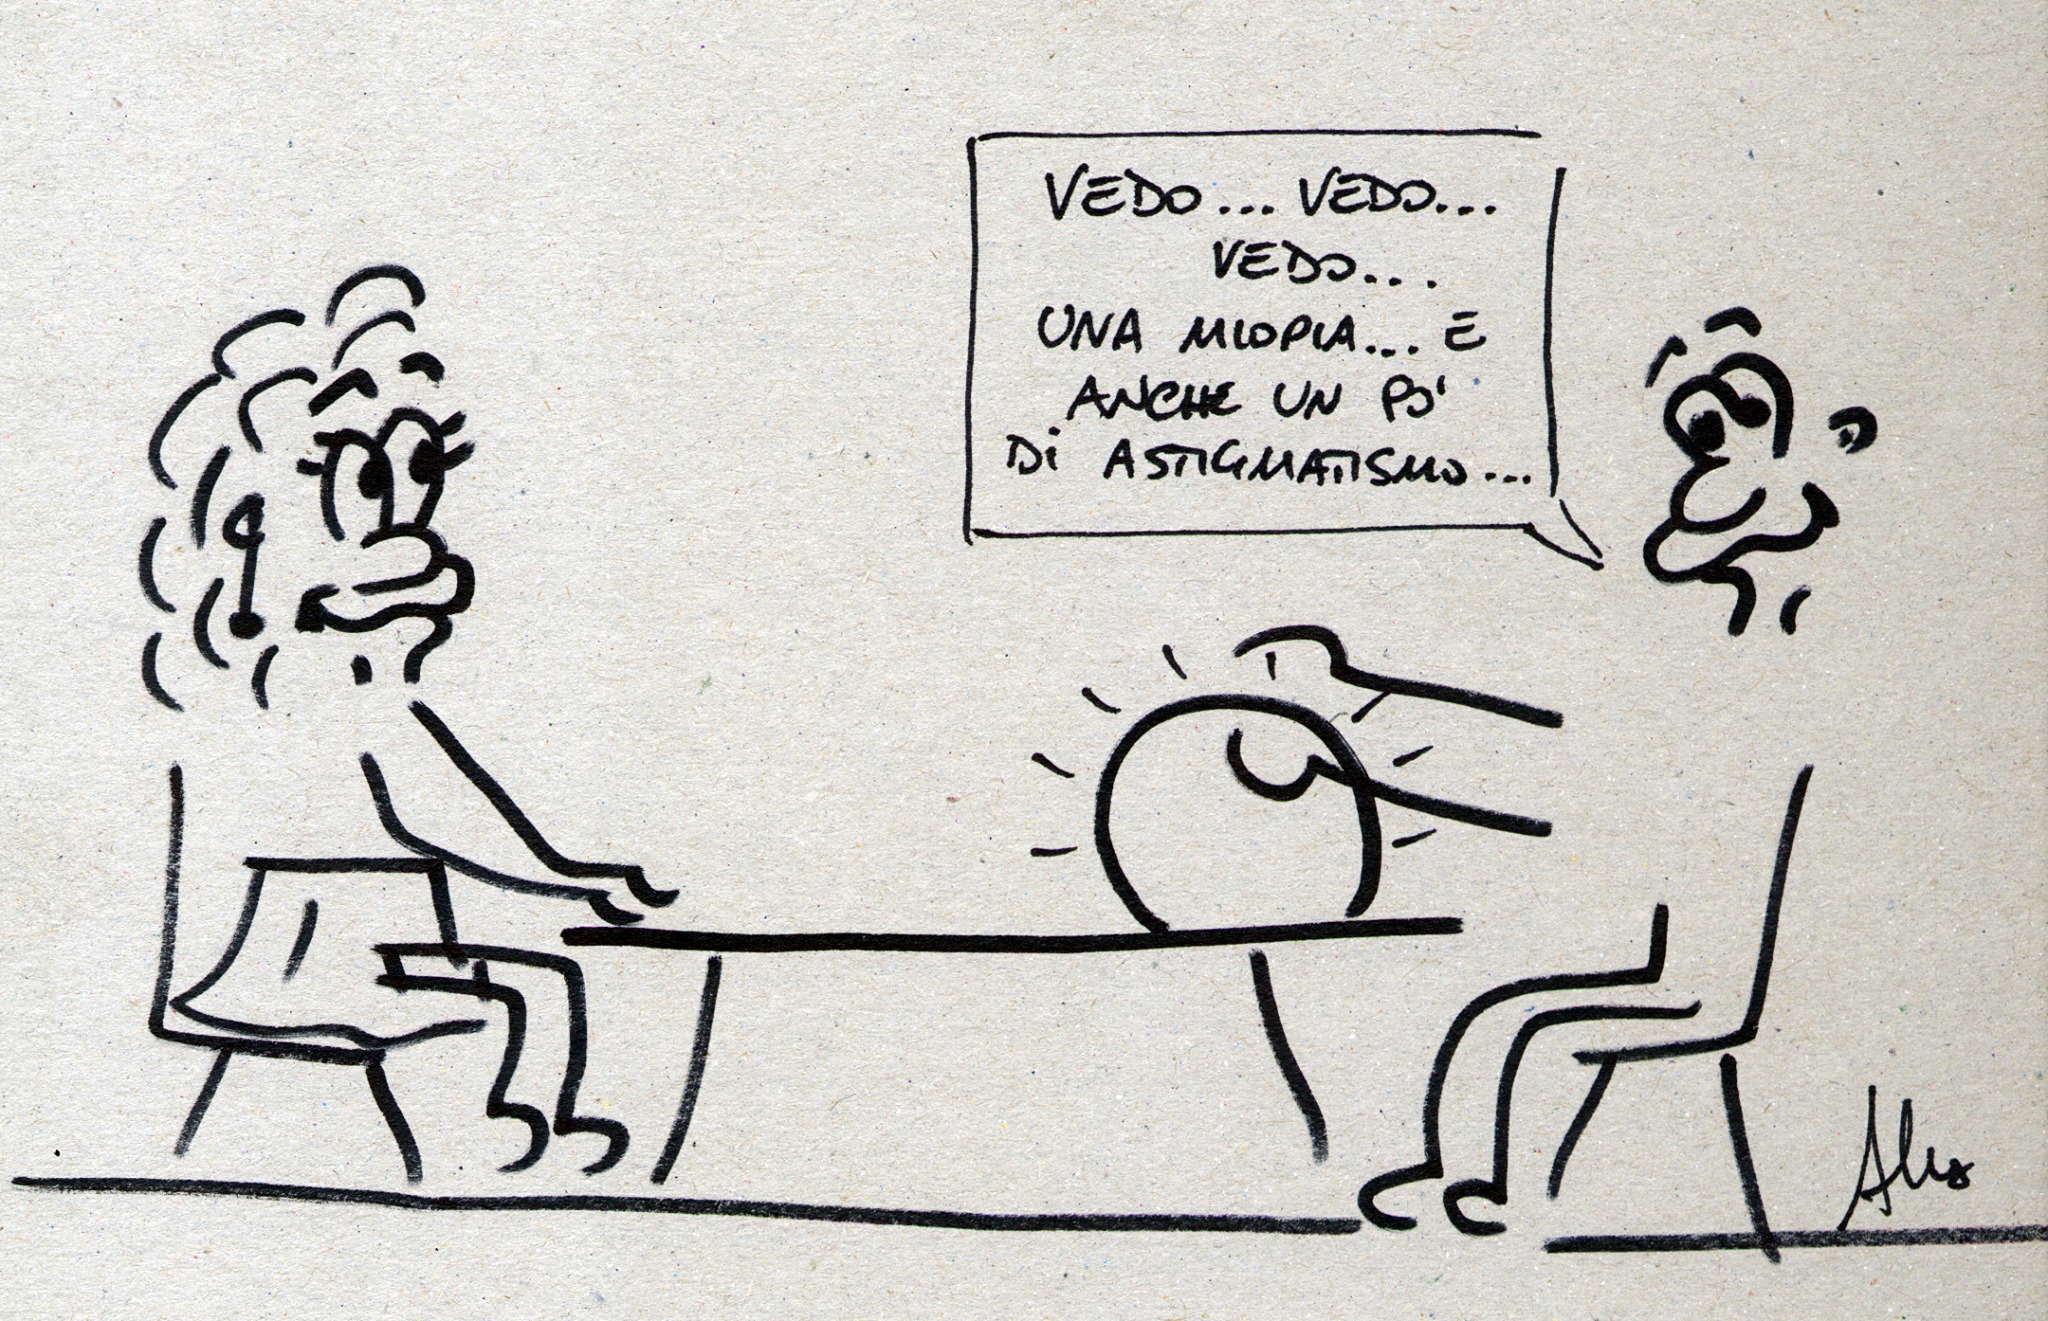 VEDO... VEDO...
VEDO...
UNA MIOPIA... E
ANCHE UN PO'
DI ASTIGMATISMO...